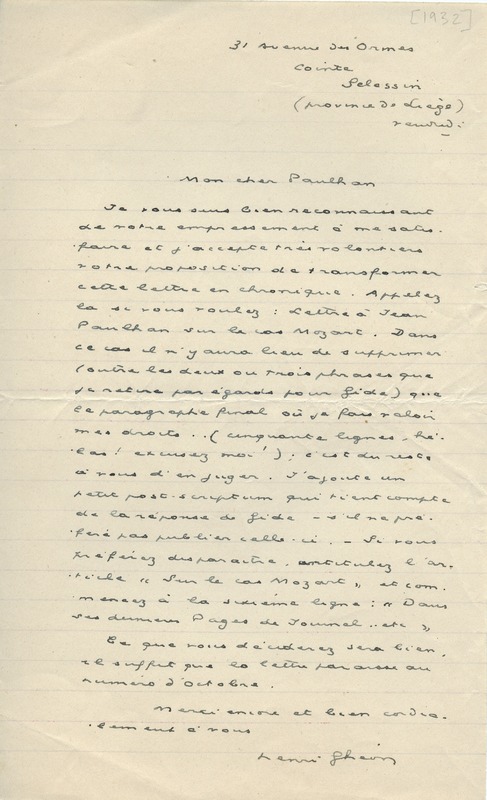 [1932]
31 Avenue des Ormes
Cointe
Sclessin
(province de Liège)
vendredi
Mon cher Paulhan
Je vous suis bien reconnaissant
de votre empressement à me satis-
faire et j'accepte très volontiers
votre proposition de transformer
cette lettre en chronique. Appelez
la si vous voulez : Lettre à Jean
Paulhan sur le cas Mozart. Dans
ce cas il n'y aura lieu de supprimer
(outre les deux ou trois phrases que
je retire par égards pour Gide) que
le paragraphe final où je fais valoir
mes droits.. (cinquante lignes, hé-
las! excusez moi!) ; c'est du reste
à vous d'en juger. J'ajoute un
petit post-scriptum qui tient compte
de la réponse de Gide – s'il ne pré-
fère pas publier celle-ci. – Si vous
préférez disparaître, intitulez l'ar-
ticle « Sur le cas Mozart » et com-
mencez à la sixième ligne : « Dans
ses derniers Pages de Journal.. etc »
Ce que vous déciderez sera bien,
il suffit que la lettre paraisse au
numéro d'Octobre.
Merci encore et bien cordia-
lement à vous
Henri Ghéon